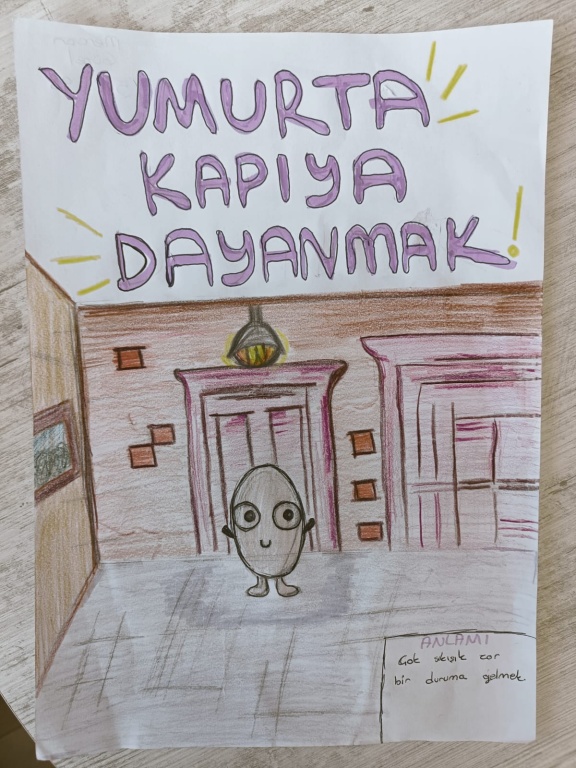 YUMURTA
KAPIYA
DAYANMAK!
ANLAMI
Çok sıkışık zor
bir duruma gelmek.